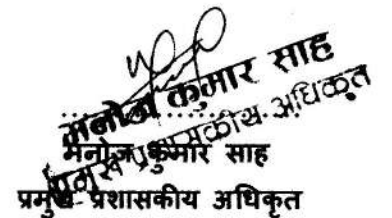 मनोज कुमार साह
प्रमुख प्रशासकीय अधिकृत
..............................
मनोज कुमार साह
प्रमुख प्रशासकीय अधिकृत